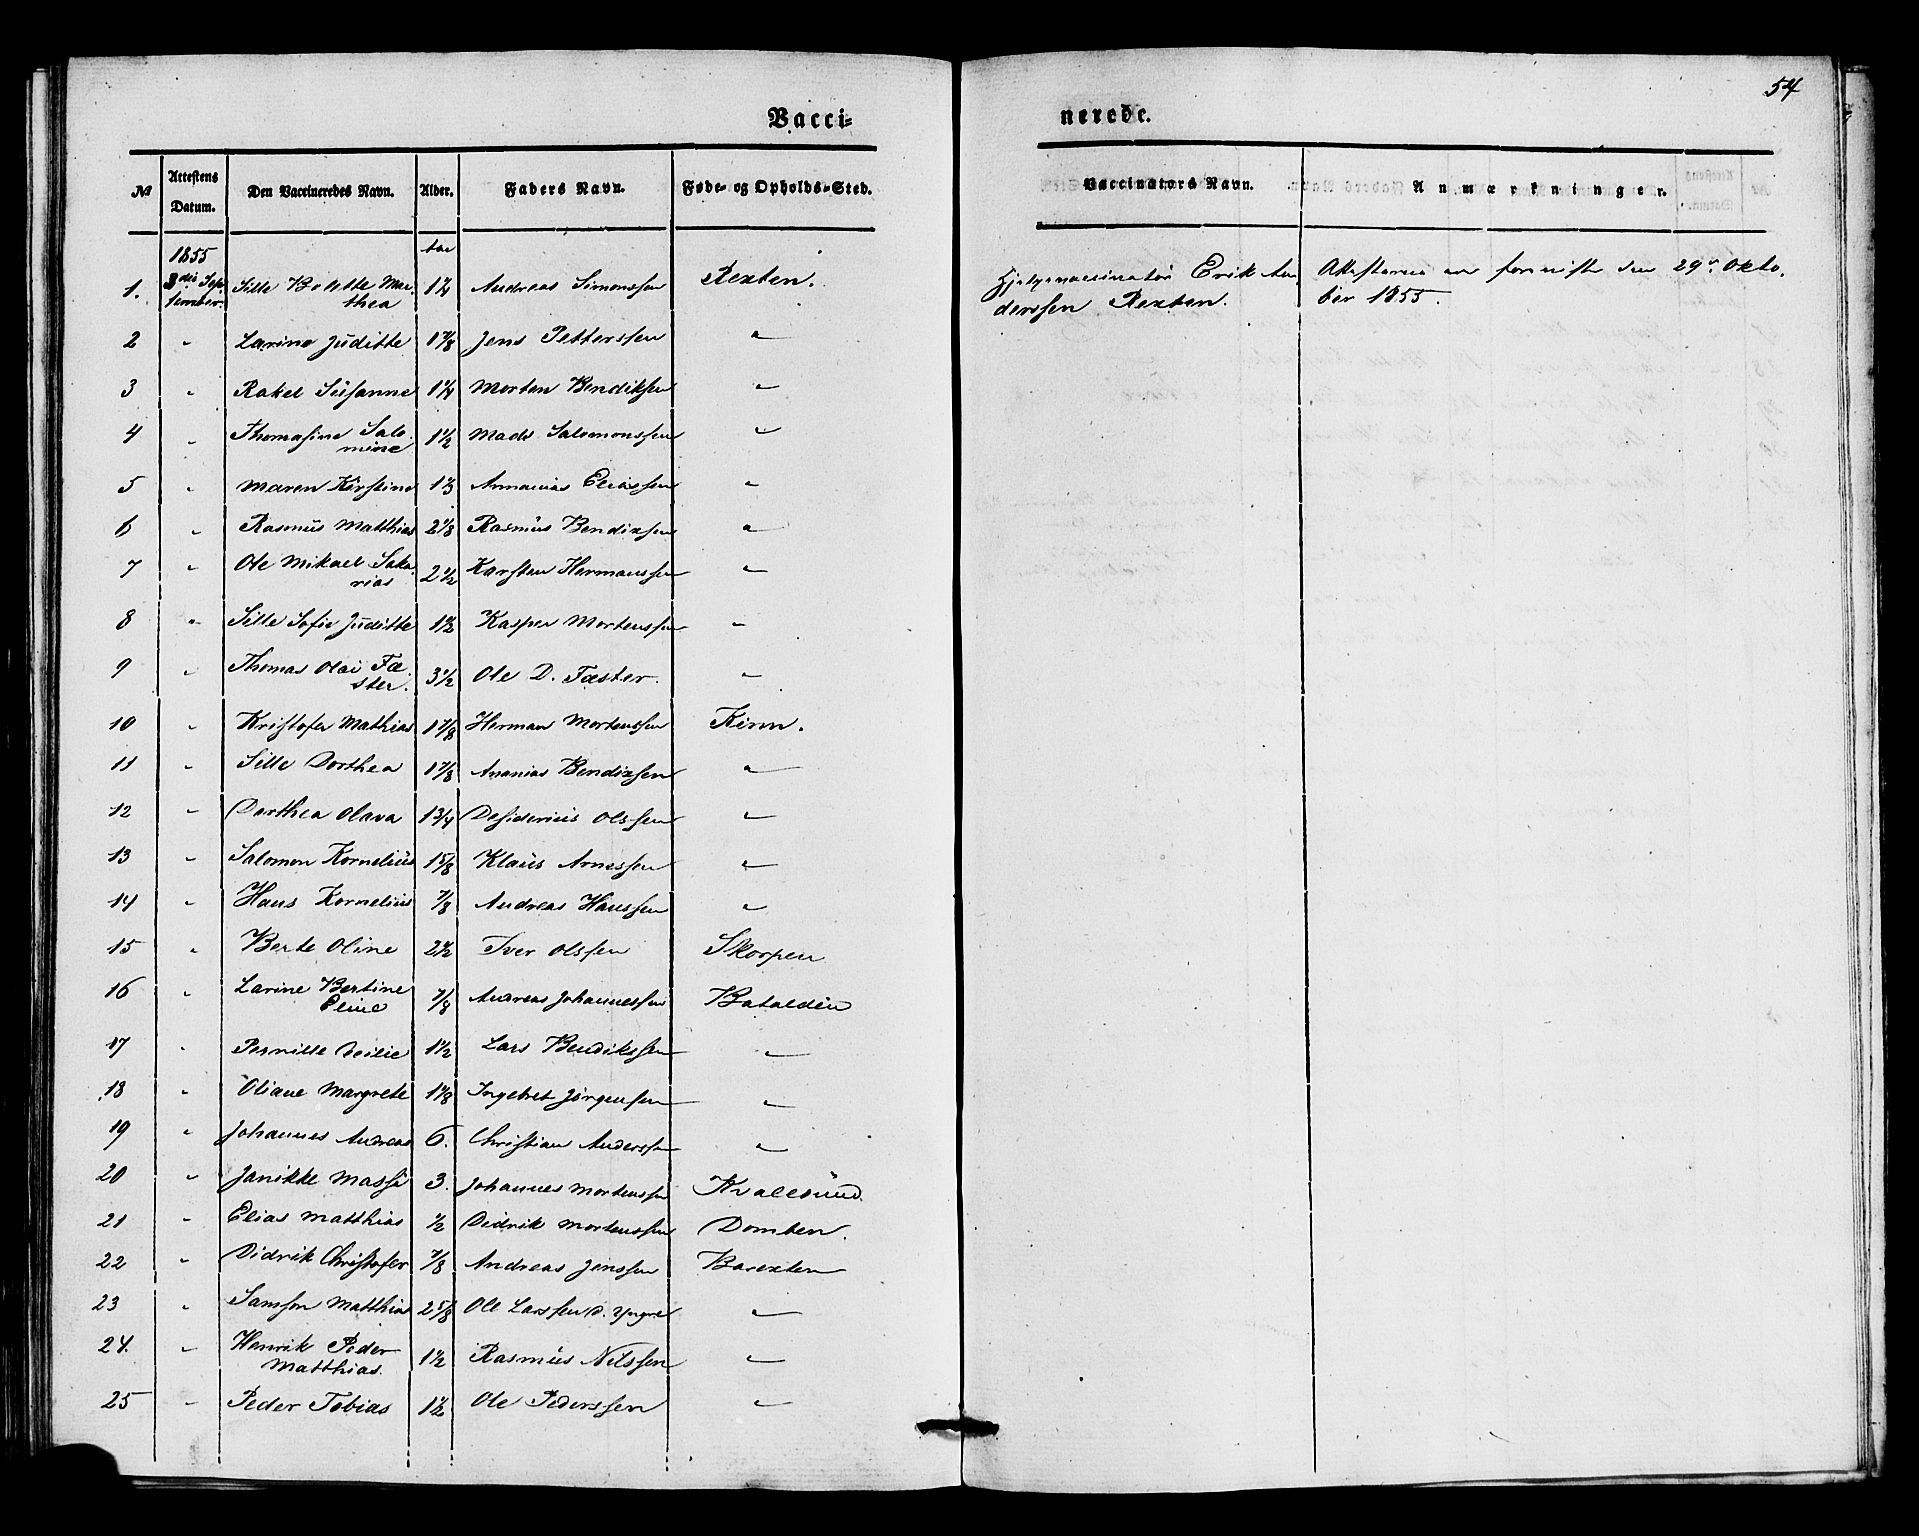 54
Vacci-
nerede.
№ Attestens Datum. Den Vaccineredes Navn. Alder. Faders Navn. Føde- og Opholds-Sted. Vaccinators Navn. Anmærkninger.
1855 Aar
1. 3die Sep- Sille Bolette Mar- 1¼ Andreas Simonssen Rexten. Hjelpevaccinatør Erik An- Attesterne ere forniste den 29de Okto-
tember. thea derssen Rexten. ber 1855.
2 " Larine Juditte 1⅞ Jens Petterssen "
3 " Rakel Susanne 1¼ Morten Bendiksen "
4 " Thomasine Salo- 1½ Mads Salomonssen "
mine
5 " Maren Kirstine 1⅓ Annanias Eliassen "
6 " Rasmus Matthias 2⅛ Rasmus Bendixsen "
7 " Ole Mikael Saka- 2½ Karsten Hermanssen "
rias
8 " Sille Sofie Juditte 1½ Kasper Mortenssen "
9 " Thomas Olai Fæ- 3½ Ole D. Fæster. "
ster.
10 " Kristofer Mathias 1⅞ Herman Mortenssen Kinn.
11 " Sille Dorthea 1⅞ Ananias Bendixsen "
12 " Dorthea Olava 1¾ Desiderius Olssen "
13 " Salomon Kornelius 1⅝ Klaus Arnessen "
14 " Hans Kornelius ⅞ Andreas Hanssen "
15 " Berte Oline 2½ Iver Olssen Skorpen
16 " Larine Bertine ⅞ Andreas Johannessen Batalden
Eline
17 " Pernille 1½ Lars Bendikssen "
18 " Oliane Margrete 1⅛ Ingebret Jørgensen "
19 " Johannes Andreas 6. Christian Anderssen "
20 " Janikke Massi 3. Johannes Mortenssen Kvalesund.
21 " Elias Matthias ½ Didrik Mortenssen Domben.
22 " Didrik Christofer ⅞ Andreas Jenssen Barexten
23 " Samson Matthias 2⅝ Ole Larssen d. Yngre "
24. " Henrik Peder 1½ Rasmus Nilssen "
Matthias.
25 " Peder Tobias 1½ Ole Pederssen "